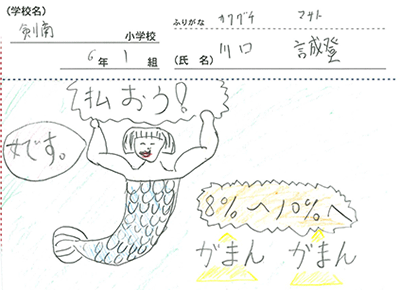 (学校名)
剣南
小学校
6年1組
ふりがな カワグチ マサト
(氏名) 川口 誠登
払おう!
女です。
8%へ10%へ
がまん がまん